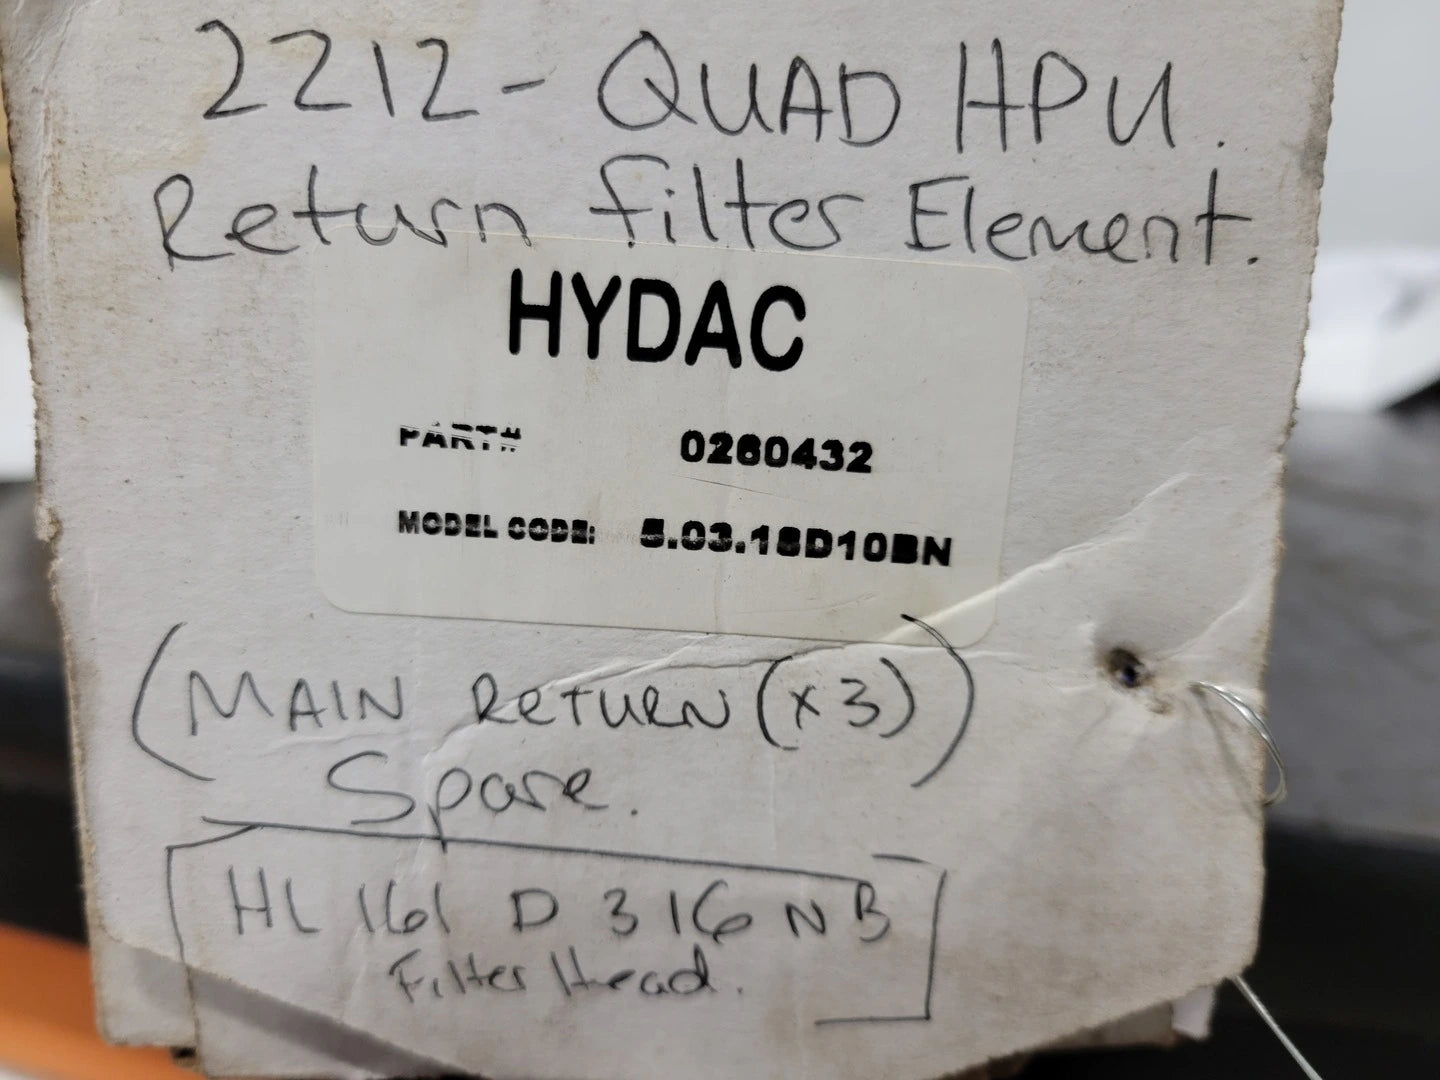 2212 - QUAD HPU.
Return filter Element.
HYDAC
PART# 0260432
MODEL CODE: 5.03.18D10BN
(MAIN RETURN (x3))
Spare.
HL 161 D 316 N B
Filter Head.